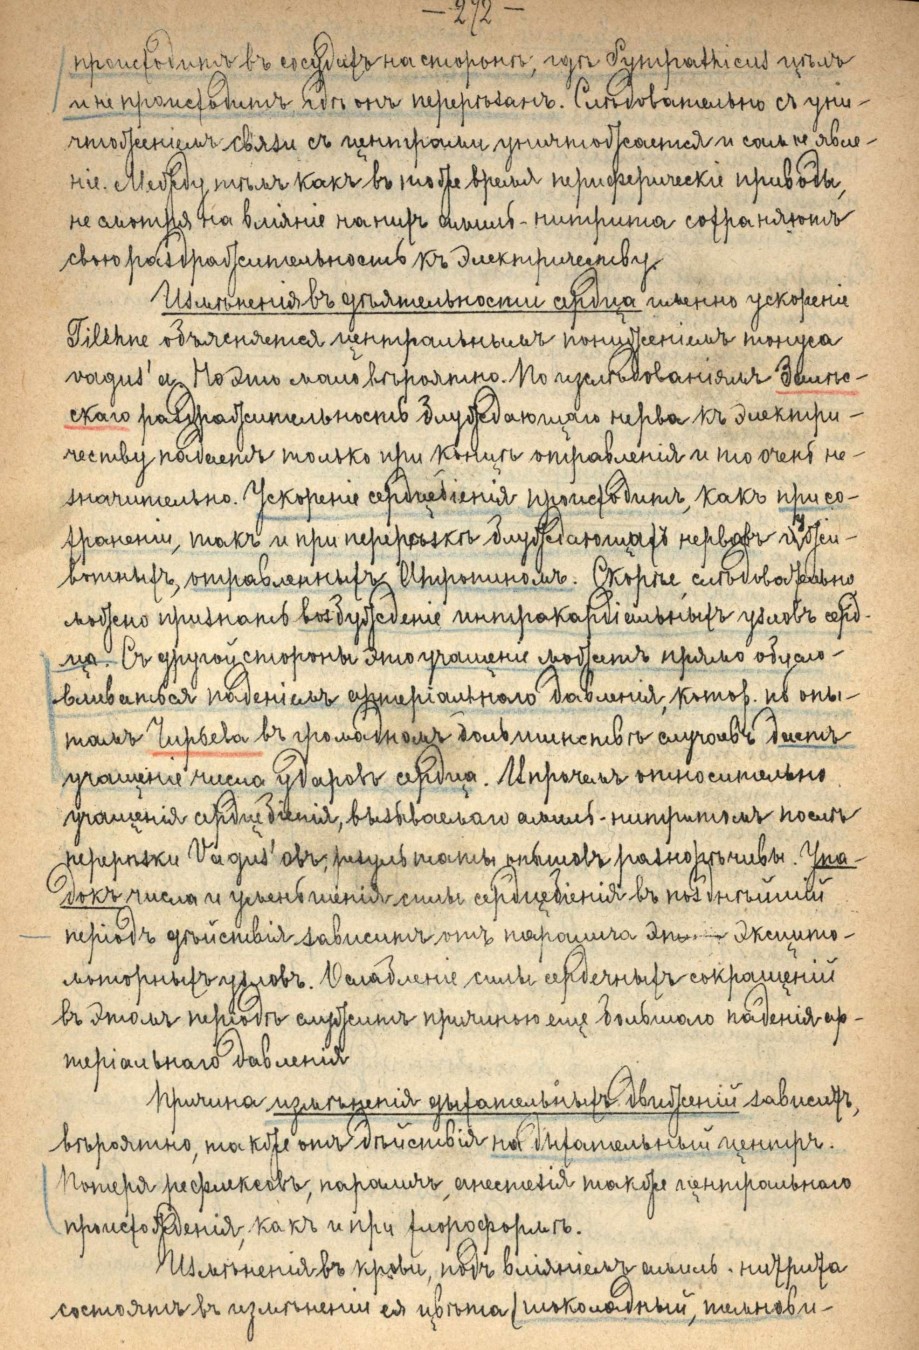 — 272 —
происходитъ въ сосудахъ на сторонѣ, гдѣ Sympathicus цѣлъ
и не происходитъ гдѣ онъ перерѣзанъ. Слѣдовательно съ уни-
чтоженіемъ связи съ центрами уничтожается и самое явле-
ніе. Между тѣмъ какъ въ тоже время периферическіе приводы,
не смотря на вліяніе на нихъ амилъ-нитрита сохраняютъ
свою раздражительность къ электричеству.
Измѣненія въ дѣятельности сердца именно ускореніе
Filehne объясняется центральнымъ пониженіемъ тонуса
vagus'а. Но это мало вѣроятно. По изслѣдованіямъ
скаго раздражительность блуждающаго нерва къ электри-
честву падаетъ только при концѣ отравленія и то очень не-
значительно. Ускореніе сердцебіенія происходитъ, какъ при со-
храненіи, такъ и при перерѣзкѣ блуждающихъ нервовъ у жи-
вотныхъ, отравленныхъ Атропиномъ. Скорѣе, слѣдовательно
можно признать возбужденіе интракардіальныхъ узловъ серд-
ца. Съ другой стороны это учащеніе можетъ прямо обусло-
вливаться паденіемъ артеріальнаго давленія, котор. по опы-
тамъ Чирьева въ громадномъ большинствѣ случаевъ даетъ
учащеніе числа ударовъ сердца. Впрочемъ относительно
учащенія сердцебіенія, вызываемаго амилъ-нитритомъ послѣ
перерѣзки Vagus'овъ, результаты опытовъ разнорѣчивы. Упа-
докъ числа и уменьшенія силы сердцебіенія въ позднѣйшій
періодъ дѣйствія зависитъ отъ паралича эксцито-
моторныхъ узловъ. Ослабленіе силы сердечныхъ сокращеній
въ этомъ періодѣ служитъ причиною еще большаго паденія ар-
теріальнаго давленія
Причина измѣненія дыхательныхъ движеній зависитъ,
вѣроятно, также отъ дѣйствія на дыхательный центръ.
Потеря рефлексовъ, параличъ, анестезія также центральнаго
происхожденія, какъ и при хлороформѣ.
Измѣненія въ крови, подъ вліяніемъ амилъ-нитрита
состоятъ въ измѣненіи ея цвѣта (шоколадный, темнови-